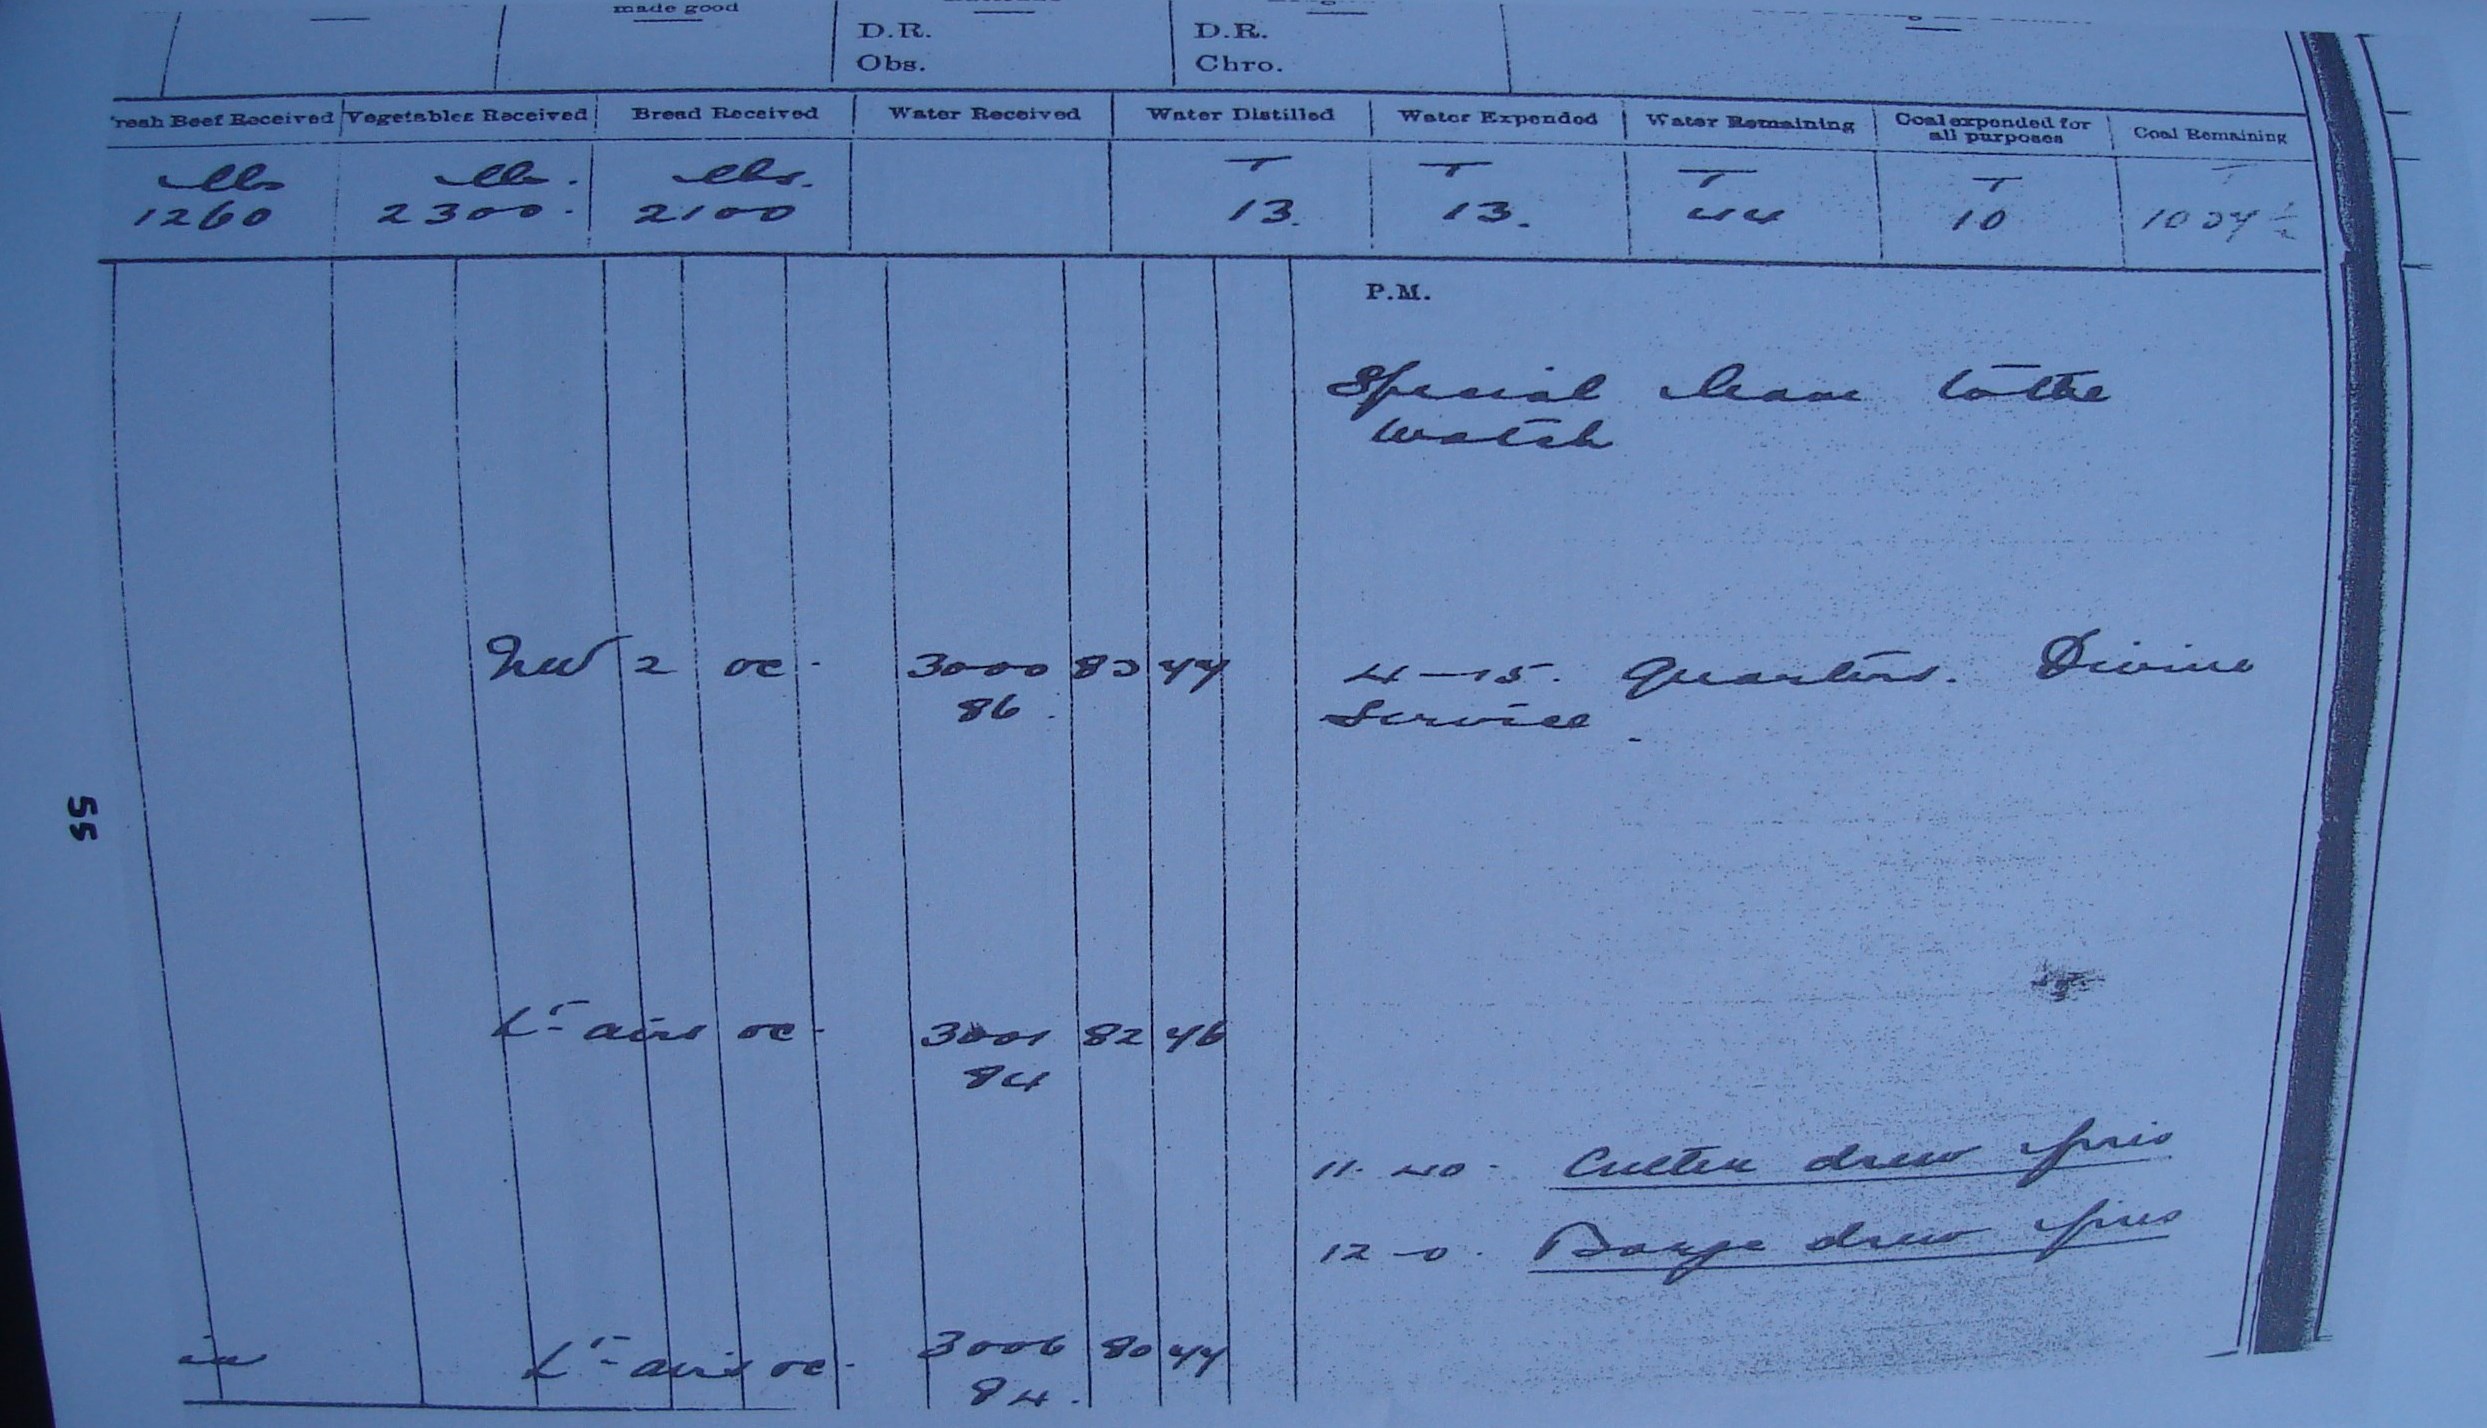 made good
D.R.
D.R.
Obs.
Chro.
resh Beef Received Vegetables Received Bread Received Water Received Water Distilled Water Expended Water Remaining Coal expended for all purposes Coal Remaining
lbs lbs. lbs. T T T T T
1260 2300. 2100 13. 13. 44 10
P.M.
Special leave to the
watch
NW 2 oc. 3000 83 44 4-15. Quarters. Divine
86. Service.
55
Lt airs oc. 3001 82 46
84
11.40. Cutter drew fires
12-0. Barge drew fires
Lt airs oc. 3006 80 44
84.